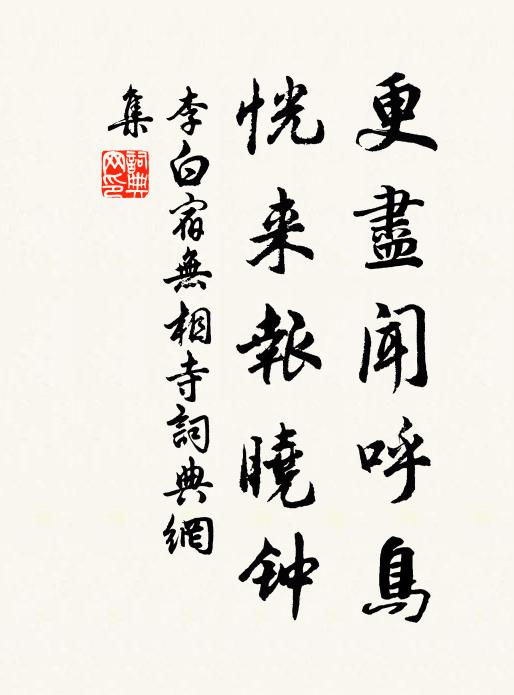 更盡聞呼鳥
恍来報曉钟
李白宿無相寺詞典網
集
詞典网印